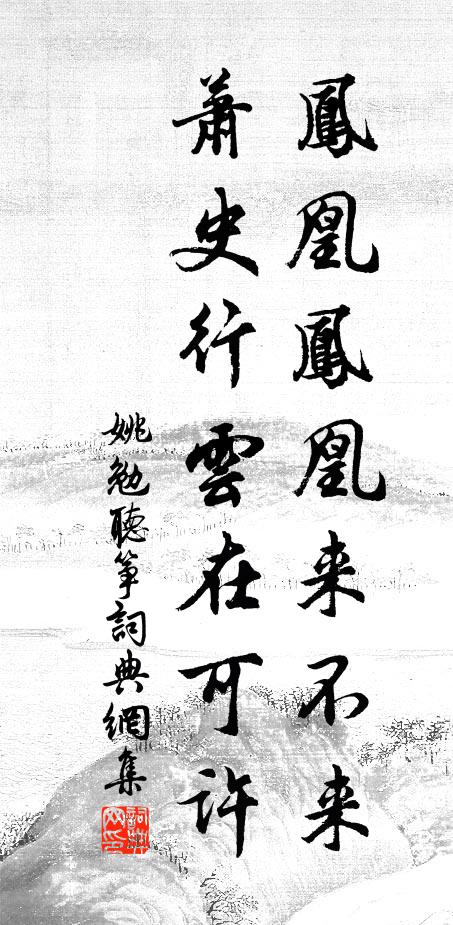 鳳凰鳳凰来不来
蕭史行雲在可許
姚勉聽筝詞典網集